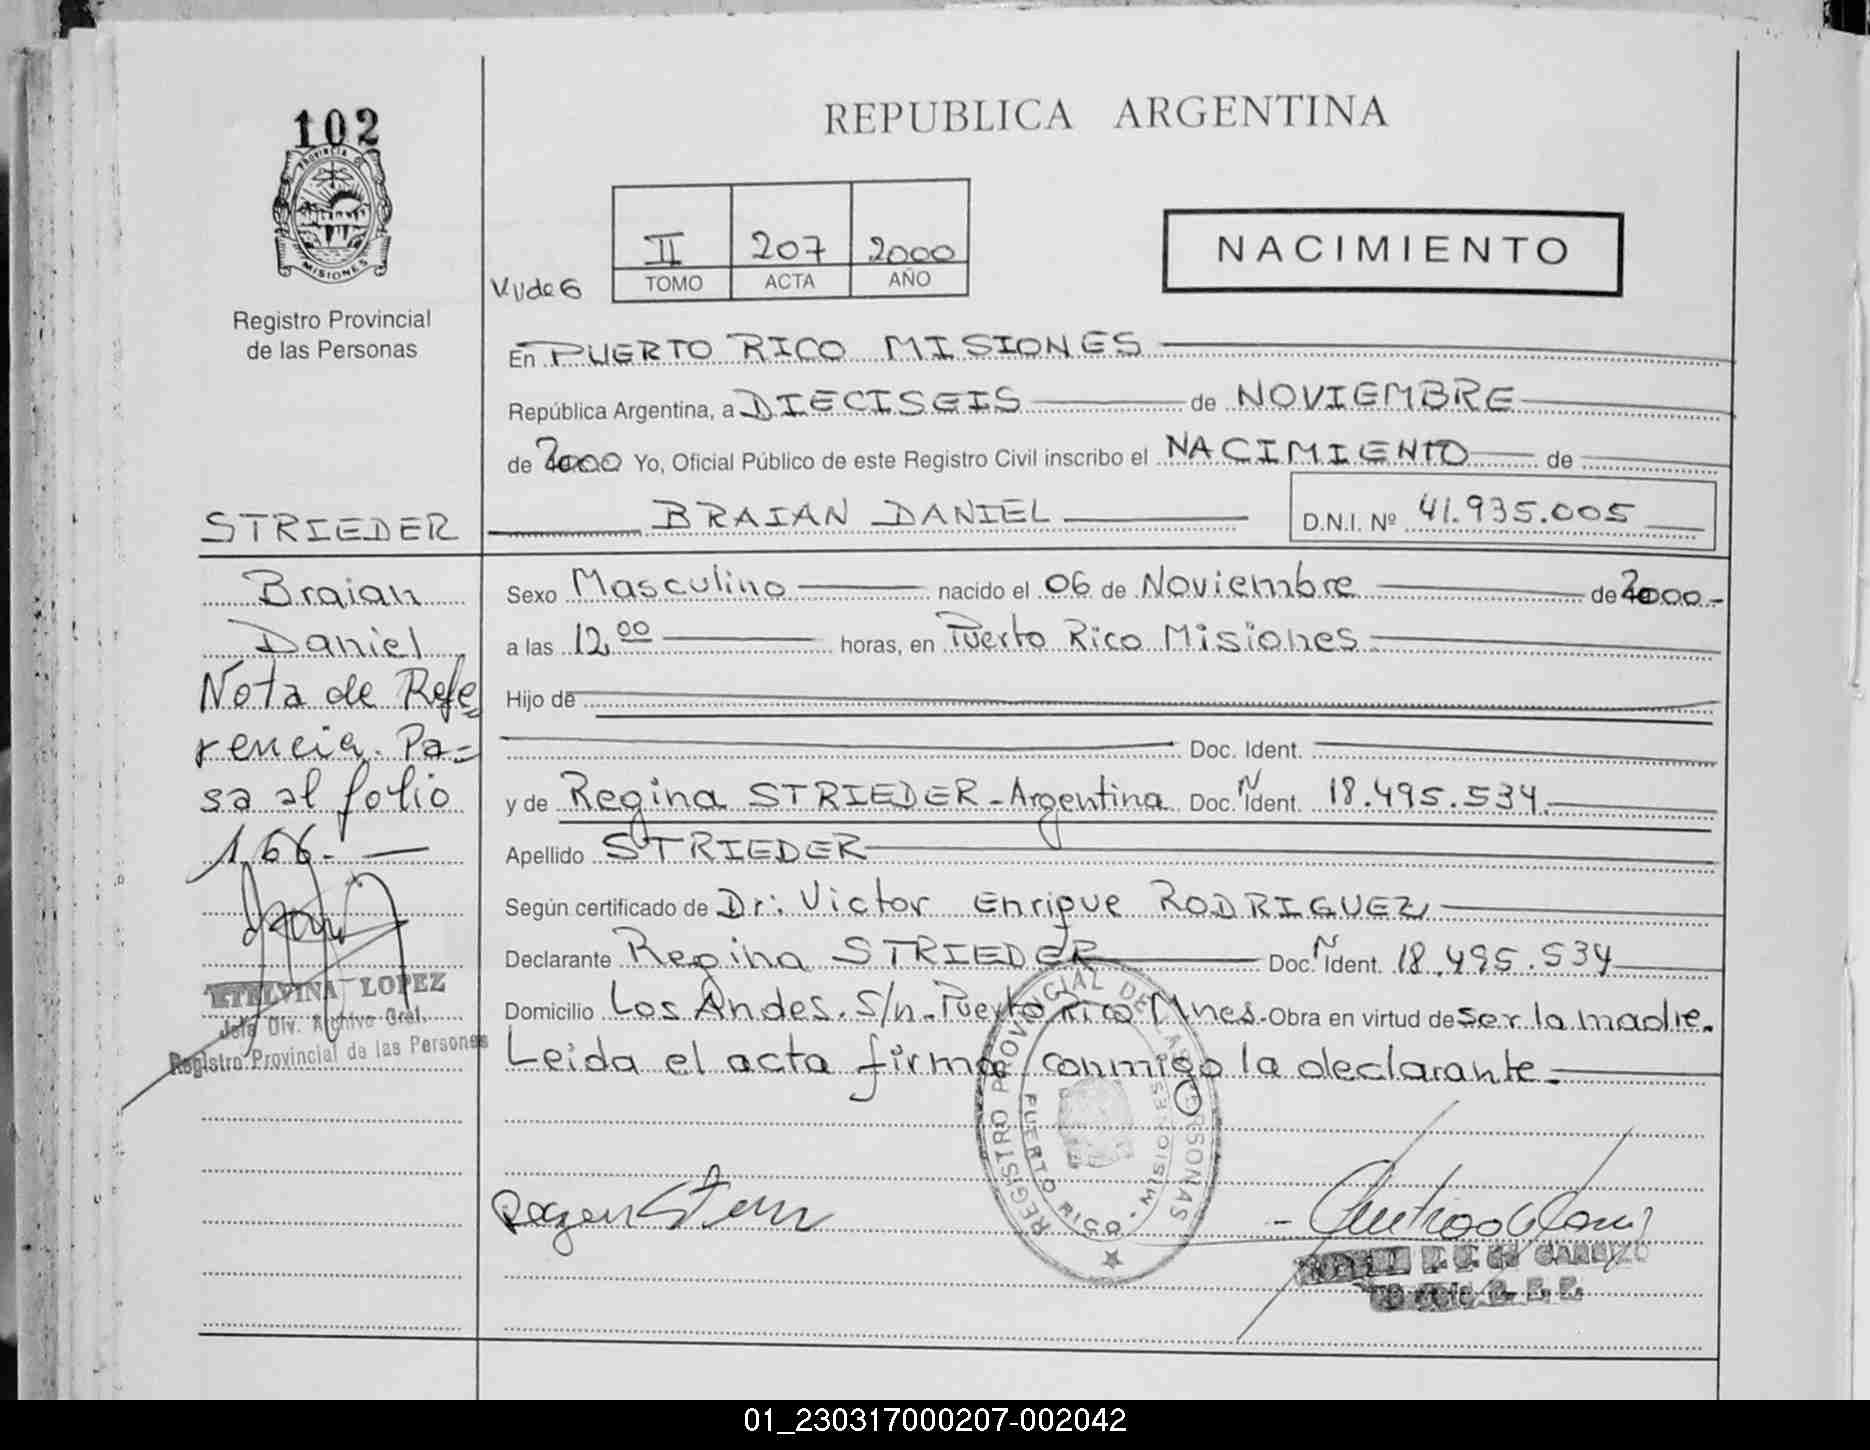 102
PROVINCIA DE
MISIONES
Registro Provincial
de las Personas
REPUBLICA ARGENTINA
II 207 2000
TOMO ACTA AÑO
NACIMIENTO
En PUERTO RICO MISIONES
República Argentina, a DIECISEIS de NOVIEMBRE
de 2000 Yo, Oficial Público de este Registro Civil inscribo el NACIMIENTO de
BRAIAN DANIEL D.N.I. Nº 41.935.005
STRIEDER
Braian
Daniel
Nota de Refe=
rencia. Pa=
sa al folio
166.-
ETELVINA LOPEZ
Jefa Div. Archivo Gral.
Registro Provincial de las Personas
Sexo Masculino nacido el 06 de Noviembre de 2000.-
a las 12,00 horas, en Puerto Rico Misiones
Hijo de
Doc. Ident.
y de Regina STRIEDER-Argentina Doc. N Ident. 18.495.534.
Apellido STRIEDER
Según certificado de Dr: Victor Enrique RODRIGUEZ
Declarante Regina STRIEDER Doc. N Ident. 18.495.534
Domicilio Los Andes. S/n-Puerto Rico Mnes. Obra en virtud de ser la madre.
Leida el acta firma conmigo la declarante.
REGISTRO PROVINCIAL DE LAS PERSONAS
PUERTO RICO - MISIONES
01_230317000207-002042